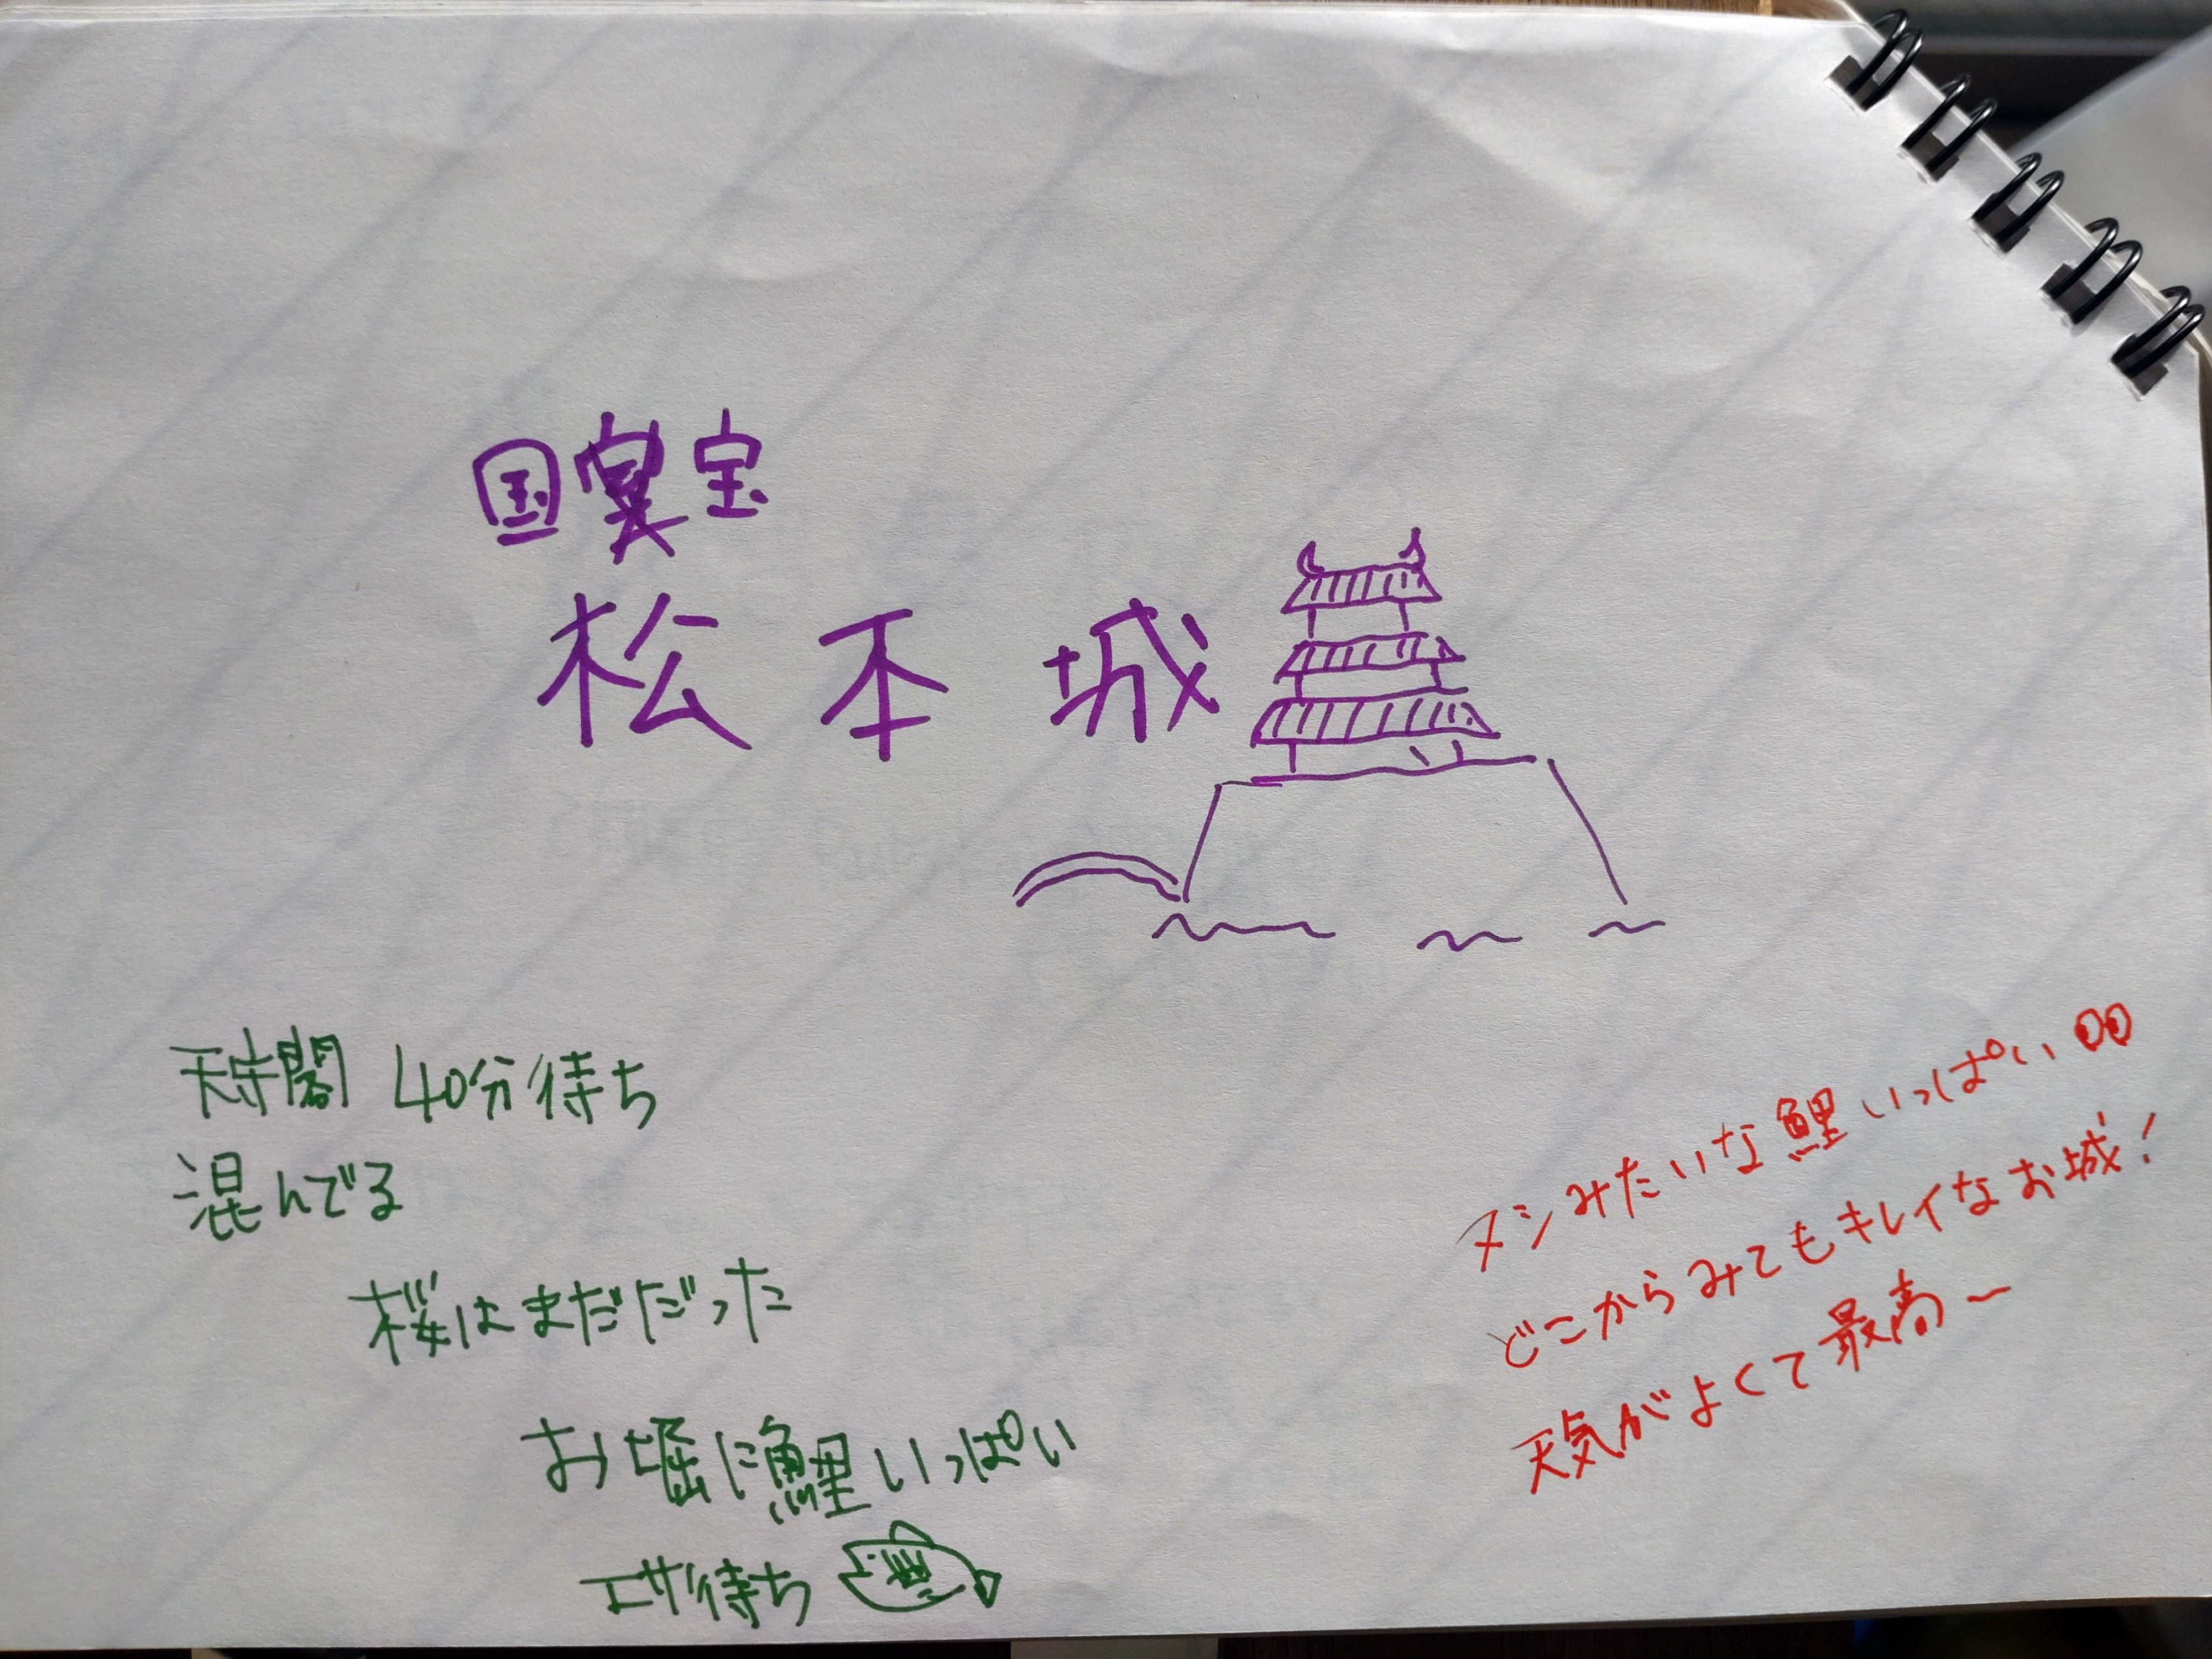 国宝
松本城
天守閣 40分待ち
混んでる
桜はまだだった
お堀に鯉いっぱい
エサ待ち
ヌシみたいな鯉いっぱい
どこからみてもキレイなお城!
天気がよくて最高〜